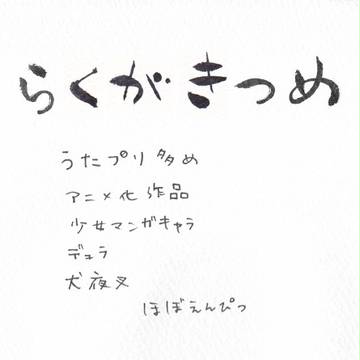 らくがきつめ
うたプリ多め
アニメ化作品
少女マンガキャラ
デュラ
犬夜叉
ほぼえんぴつ